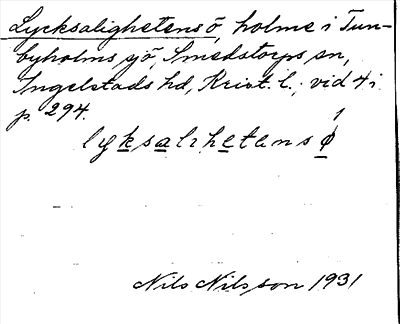 Lycksalighetens ö, holme i Tun-
byholms sjö, Smedstorps sn,
Ingelstads hd, Krist. l.; vid 4 i
p. 294.
lyksalihetens ö
Nils Nilsson 1931